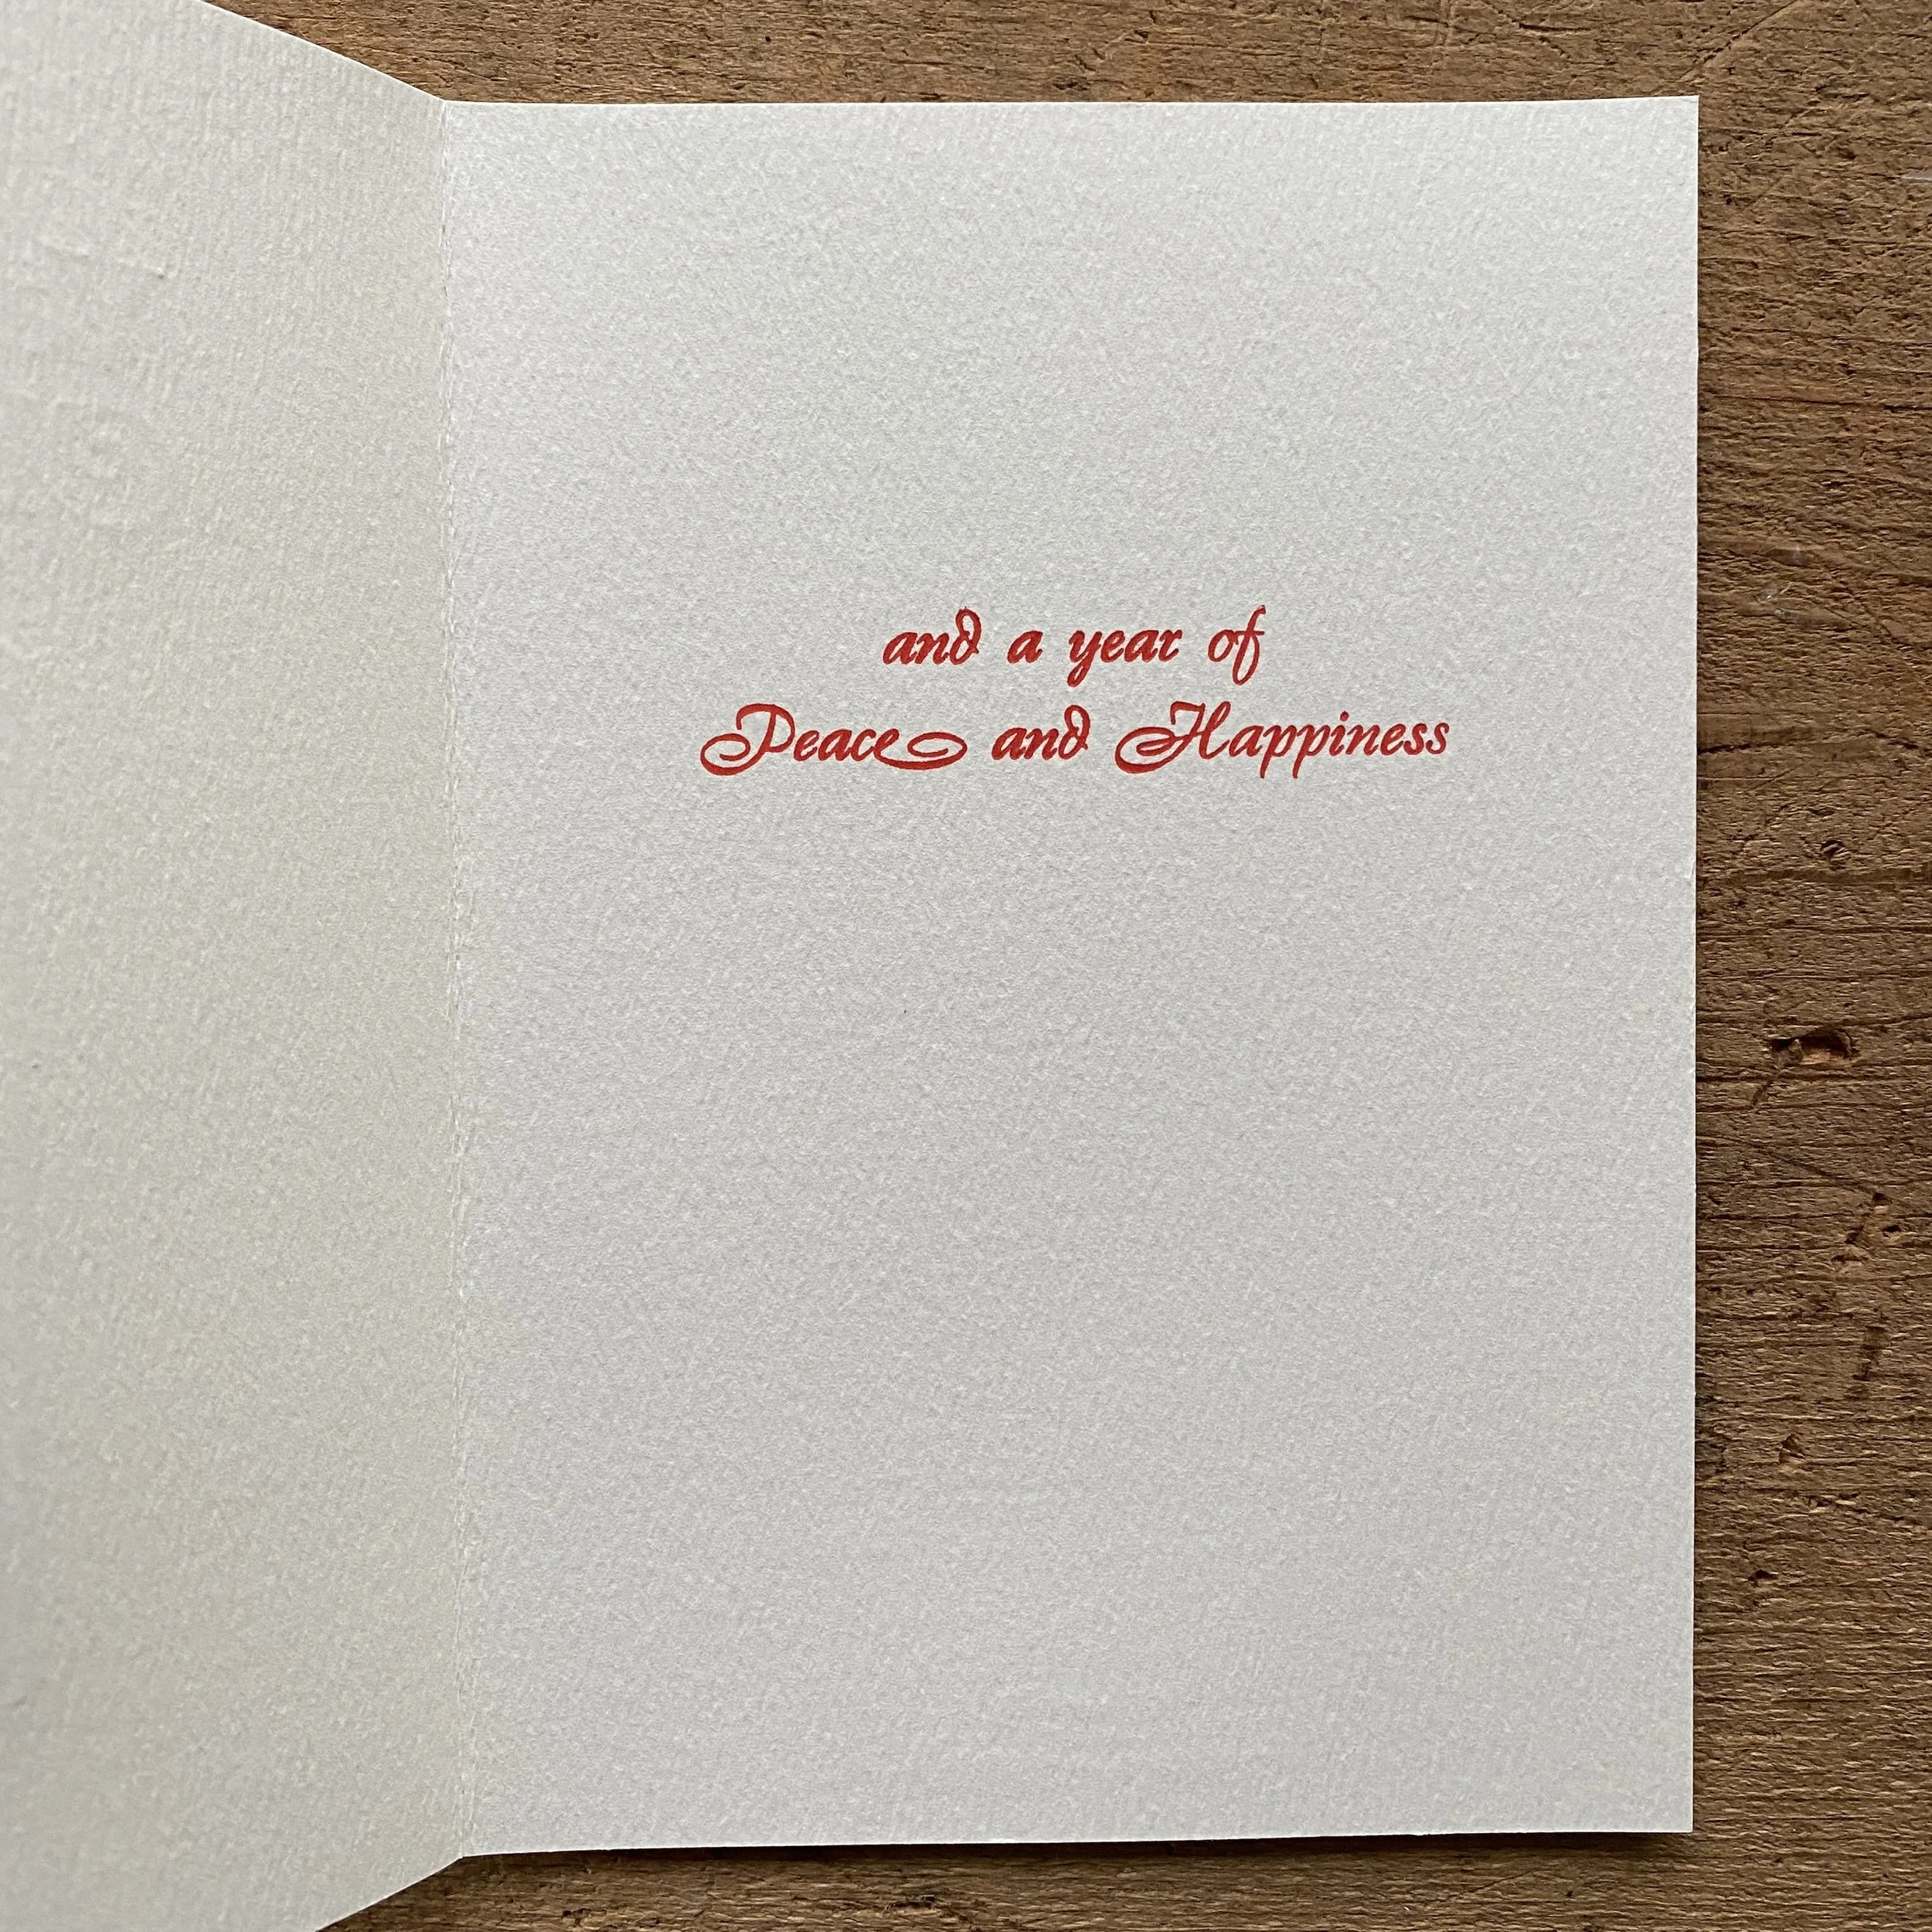 and a year of
Peace and Happiness